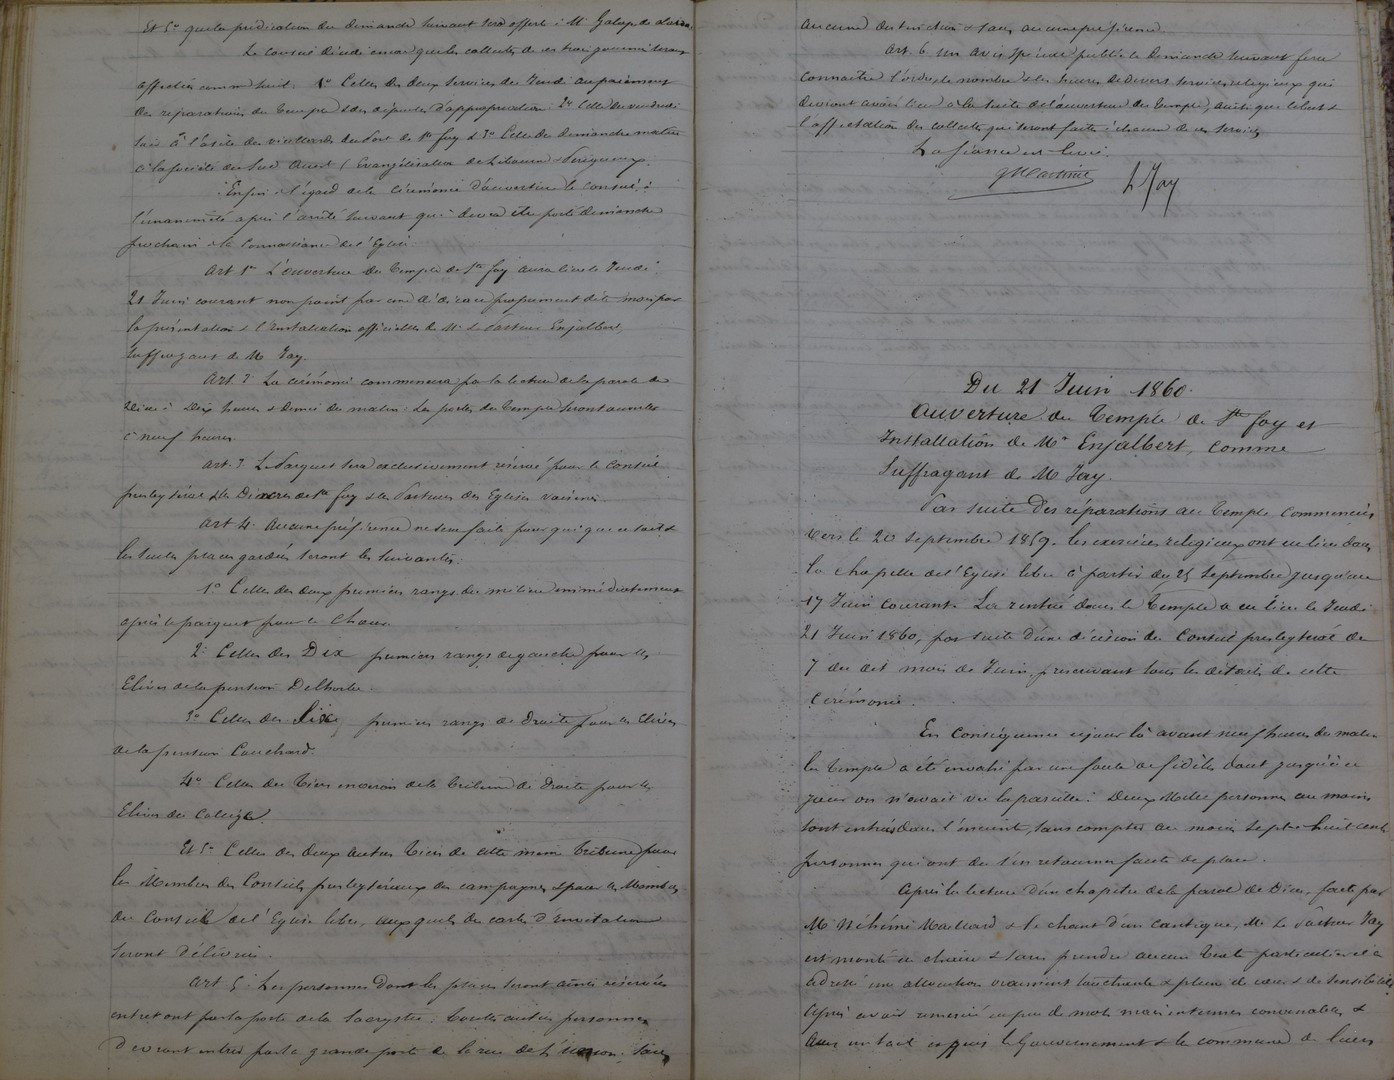 Et 5° que la prédication du dimanche suivant sera offerte à Mr Galup de
Le conseil décide encore que les collectes de ces trois journées seront
affectées comme suit. 1° Celles des deux services du Jeudi au paiement
des réparations du Temple & des dépenses d'appropriation. 2° Celle du vendredi
soir à l'asile des vieillards du Port de Ste foy & 3° Celle du dimanche matin
à la Société du Sud Ouest (Evangélisation de Libourne & Périgueux.
Enfin à l'égard de la cérémonie d'ouverture le conseil à
l'unanimité a pris l'arrêté suivant qui devra être porté dimanche
prochain à la connaissance de l'Eglise.
Art 1er L'ouverture du Temple de Ste foy aura lieu le Jeudi
21 Juin courant non point par une dédicace proprement dite mais par
la présentation & l'Installation officielles de Mr le Pasteur Enjalbert,
suffragant de Mr Jay.
Art 2. La cérémonie commencera par la lecture de la parole de
Dieu à Dix heures & demie du matin. Les portes du Temple seront ouvertes
à neuf heures.
art. 3. Le Parquet sera exclusivement réservé pour le Conseil
presbytéral & les Diacres de Ste foy & les Pasteurs des Eglises voisines.
Art 4. Aucune préférence ne sera faite pour qui que ce soit &
les seules places gardées seront les suivantes:
1° Celles des deux premiers rangs du milieu immédiatement
après le parquet pour le Chœur.
2° Celles des Dix premiers rangs de gauche pour les
Elèves de la pension Delhorbe.
3° Celles des Six premiers rangs de droite pour les Elèves
de la pension Couchard.
4° Celles du Tiers environ de la Tribune de Droite pour les
Elèves du Collège.
Et 5° Celles des deux autres Tiers de cette même Tribune pour
les Membres des Conseils presbytéraux des campagnes & pour les Membres
du Conseil de l'Eglise libre, auxquels des cartes d'Invitation
seront délivrées.
Art. 5. Les personnes dont les places seront ainsi réservées
entreront par la porte de la sacristie. Toutes autres personnes
devront entrer par la grande porte de la rue de l'union. Sans
aucune distinction & sans aucune préférence.
Art. 6. Un avis spécial publié le Dimanche suivant fera
connaître l'ordre, le nombre & les heures des divers services religieux qui
devront avoir lieu à la suite de l'ouverture du Temple, ainsi que l'objet &
l'affectation des collectes qui seront faites à chacun de ces services.
La séance est levée.
H Jay
Du 21 Juin 1860.
Ouverture du Temple de Ste foy et
Installation de Mr Enjalbert, comme
Suffragant de Mr Jay.
Par suite des réparations au Temple commencées
vers le 20 Septembre 1859. les exercices religieux ont eu lieu dans
la chapelle de l'Eglise libre à partir du 25 Septembre jusqu'au
17 Juin courant. La rentrée dans le Temple a eu lieu le Jeudi
21 Juin 1860, par suite d'une décision du Conseil presbytéral du
7 du dit mois de Juin, prescrivant tous les détails de cette
Cérémonie.
En conséquence ce jour là avant neuf heures du matin
le Temple a été envahi par une foule de fidèles dont jusqu'à ce
jour on n'avait vu la pareille: Deux Mille personnes au moins
sont entrées dans l'enceinte, sans compter au moins sept à huit cents
personnes qui ont dû s'en retourner faute de place.
Après la lecture d'un chapitre de la parole de Dieu, faite par
Mr Néhémie Maillard & le chant d'un cantique, Mr le Pasteur Jay
est monté en chaire & sans prendre aucun texte particulier il a
adressé une allocution vraiment touchante & pleine de cœur & de sensibilité.
Après avoir remercié en peu de mots mais en termes convenables &
avec un tact exquis le Gouvernement & la commune de leurs